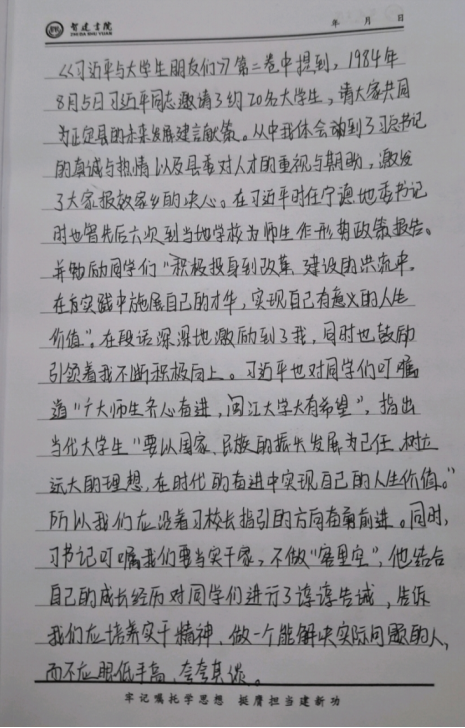 智建书院
ZHI JIA SHU YUAN
年 月 日
《习近平与大学生朋友们》第二卷中提到，1984年
8月5日习近平同志邀请了约20名大学生，请大家共同
为正定县的未来发展建言献策。从中我体会到了习总书记
的真诚与热情以及县委对人才的重视与期盼，激发
了大家报效家乡的决心。在习近平时任宁德地委书记
时也曾先后六次到当地学校为师生作形势政策报告。
并勉励同学们"积极投身到改革、建设的洪流中，
在实践中施展自己的才华，实现自己有意义的人生
价值"。在段话深深地激励到了我，同时也鼓励
引领着我不断积极向上。习近平也对同学们叮嘱
道"广大师生齐心奋进，闽江大学大有希望"，指出
当代大学生"要以国家、民族的振兴发展为己任，树立
远大的理想，在时代的奋进中实现自己的人生价值。"
所以我们应沿着习校长指引的方向奋勇前进。同时，
习书记叮嘱我们要当实干家，不做"客里空"，他结合
自己的成长经历对同学们进行了谆谆告诫，告诉
我们应培养实干精神，做一个能解决实际问题的人，
而不应眼低手高，夸夸其谈。
牢记嘱托学思想 挺膺担当建新功